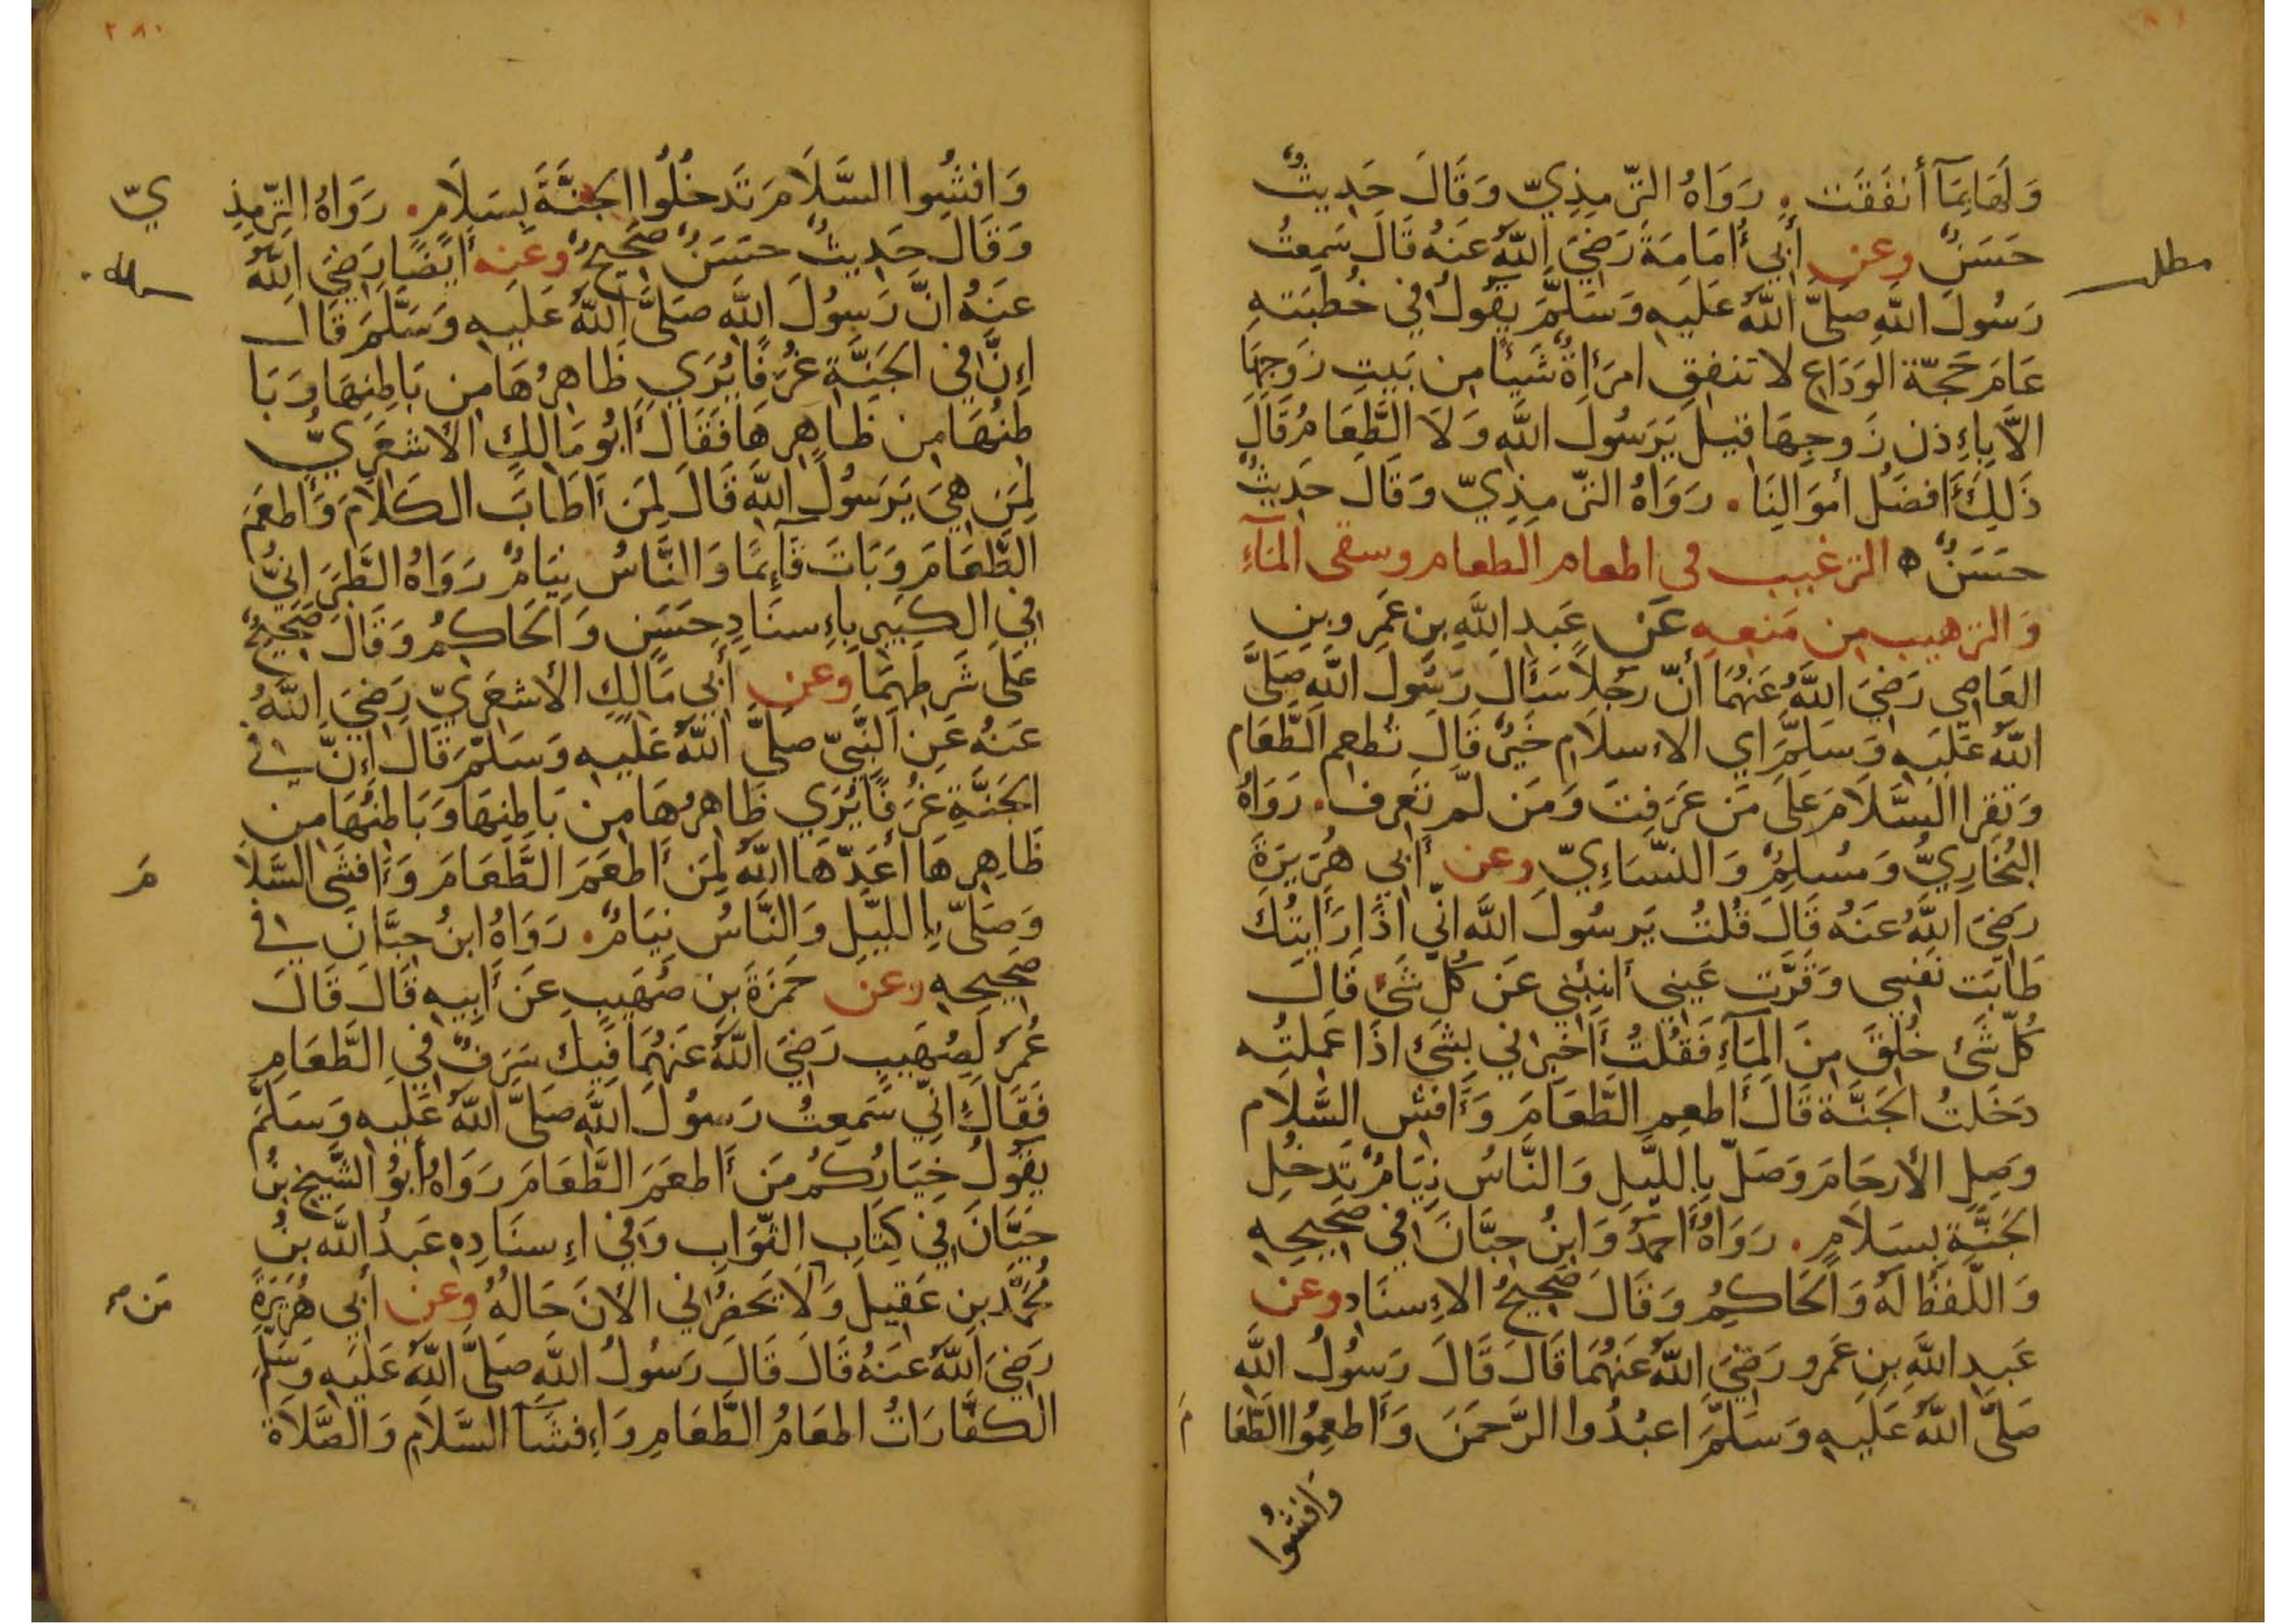 وَلَهَا بِمَا أَنفَقَت . رَوَاهُ التِّرمِذِيّ وَقَالَ حَدِيثٌ
حَسَنٌ وعن أَبِي أُمَامَةَ رَضِيَ اللَّهُ عَنهُ قَالَ سَمِعتُ
مطلب
رَسُولَ اللَّهِ صَلَّى اللَّهُ عَلَيهِ وَسَلَّمَ يَقُولُ فِي خُطبَتِهِ
عَامَ حَجّةِ الوَدَاعِ لا تنفق امرَأةٌ شَيئًا مِن بَيتِ زَوجِهَا
الاَّ بِاءِذنِ زَوجِهَا قيل يَرَسُولَ اللَّهِ وَلاَ الطَّعَامُ قَالَ
ذَلِكَ أَفضَلُ أموَالِنَا . رَوَاهُ التّرمِذِيّ وَقَالَ حَدِيثٌ
حَسَنٌ ه الترغيب في اطعام الطعام وسقى المآءِ
وَالترهيب من مَنعِهِ عَن عَبدِ اللَّهِ بنِ عَمرِو بنِ
العَاصِي رَضِيَ اللَّهُ عَنهُمَا أنّ رَجُلاً سَأَلَ رَسُولَ اللَّهِ صَلَّى
اللَّهُ عَلَيهِ وَسَلَّمَ اي الاءسلاَمِ خَيرٌ قَالَ تُطعِم الطَّعَام
وَتقرا السَّلاَمَ عَلَى مَن عَرَفتَ وَمَن لَم تَعرِف . رَوَاهُ
البُخَارِيُّ وَمُسلِمٌ وَالنّسَاءِيّ وعن أَبِي هُرَيرَةَ
رَضِيَ اللَّهُ عَنهُ قَالَ قُلتُ يَرسُولَ اللَّهِ انِّي اذَا رَأَيتُكَ
طَابَت نَفسِي وَقَرَّت عَينِي أنبِئنِي عَن كُلِّ شَئٍ قَالَ
كُلّ شَئ خُلِقَ مِنَ المَآءِ فَقُلتُ أَخبِرانِي بِشَئ اذَا عَمِلتُه
دَخَلتُ الجَنَّةَ قَالَ أَطعِمِ الطَّعَامَ وَأَفشِ السَّلام
وَصِلِ الأرحَامَ وَصَلّ بِاللَّيلِ وَالنَّاسُ نِيَامٌ تَدخُلِ
الجَنَّةَ بِسَلاَمٍ . رَوَاهُ أَحمَدُ وَابنُ حِبَّانَ فِي صَحِيحِهِ
وَاللَّفظُ لَهُ وَالحَاكِمُ وَقَالَ صَحِيحُ الاءِسنَادِ وعن
عَبدِ اللَّهِ بنِ عَمرو رَضِيَ اللَّهُ عَنهُمَا قَالَ قَالَ رَسُولُ اللَّهِ
صَلَّى اللَّهُ عَلَيهِ وَسَلَّمَ اعبُدُوا الرَّحمَنَ وَأَطعِمُوا الطَّعَا
مَ
وَافشُوا
٢٨٠
وَافشُوا السَّلاَمَ تَدخُلُوا الجَنَّةَ بِسَلاَمٍ . رَوَاهُ التِّرمِذِ
يّ
وَقَالَ حَدِيثٌ حسَنٌ صَحِيحٌ وعَنه أيضًا رَضِيَ اللَّهُ
عَنهُ انَّ رَسُولَ اللَّهِ صَلَّى اللَّهُ عَلَيهِ وَسَلَّمَ قَالَ
اءِنَّ فِي الجَنَّةِ غُرَفًا يُرَي ظَاهِرُهَا مِن بَاطِنِهَا وَبَا
طِنُهَا مِن ظَاهِرِهَا فَقَالَ أَبُو مَالِكٍ الأشعَرِيُّ
لِمَن هِيَ يَرَسُولَ اللَّهِ قَالَ لِمَن أَطَابَ الكَلاَمَ وَأَطعَمَ
الطَّعَامَ وَبَاتَ قَآئِمًا وَالنَّاسُ نِيَامٌ رَوَاهُ الطَّبَرَانِيُّ
فِي الكَبِيرِ بِاءِسنَادٍ حَسَنٍ وَالحَاكِمُ وَقَالَ صَحِيحٌ
عَلَى شَرطِهِمَا وعن أَبِي مَالِكٍ الأشعَرِيّ رَضِيَ اللَّهُ
عَنهُ عَنِ النَّبِيّ صَلَّى اللَّهُ عَلَيهِ وَسَلَّمَ قَالَ اءِنَّ فِي
الجَنَّةِ غُرَفًا يُرَي ظَاهِرُهَا مِن بَاطِنِهَا وَبَاطِنُهَا مِن
ظَاهِرِهَا أَعَدّهَا اللَّهُ لِمَن أَطعَمَ الطَّعَامَ وَأَفشَى السَّلاَ
مَ
وَصَلّى بِاللَّيلِ وَالنَّاسُ نِيَامٌ . رَوَاهُ ابنُ حِبَّانَ فِي
صَحِيحِهِ وعن حَمزَةَ بنِ صُهَيبٍ عَن أَبِيهِ قَالَ قَالَ
عُمَرُ لِصُهَيبٍ رَضِيَ اللَّهُ عَنهُمَا فِيكَ سَرَفٌ فِي الطَّعَامِ
فَقَالَ انِّي سَمِعتُ رَسُولَ اللَّهِ صَلَّى اللَّهُ عَلَيهِ وَسَلَّمَ
يَقُولُ خِيَارُكُم مَن أَطعَمَ الطَّعَامَ رَوَاهُ أَبُو الشَّيخِ بنُ
حَيَّانَ فِي كِتَابِ الثّوَابِ وَفِي اءِسنَادِهِ عَبدُ اللَّهِ بنُ
مُحَمَّدِ بنِ عَقِيلٍ وَلاَ يَحضُرُانِي الأنَ حَالُهُ وعن أَبِي هُرَيرَةَ
رَضِيَ اللَّهُ عَنهُ قَالَ قَالَ رَسُولُ اللَّهِ صَلَّى اللَّهُ عَلَيهِ وَسَلَّمَ
الكَفَّارَاتُ اطعَامُ الطَّعَامِ وَاءِفشَآ السَّلاَمِ وَالصَّلاَة